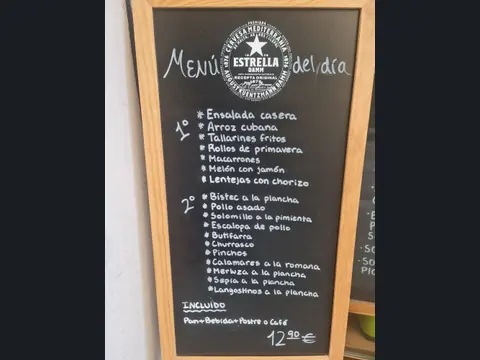 Menú del día
CERVESA MEDITERRÀNIA
1876
ESTRELLA
DAMM
RECEPTA ORIGINAL
1876
AUGUST KUENTZMANN DAMM
1º
* Ensalada casera
* Arroz cubana
* Tallarines fritos
* Rollos de primavera
* Macarrones
* Melón con jamón
* Lentejas con chorizo
2º
* Bistec a la plancha
* Pollo asado
* Solomillo a la pimienta
* Escalopa de pollo
* Butifarra
* Churrasco
* Pinchos
* Calamares a la romana
* Merluza a la plancha
* Sepia a la plancha
* Langostinos a la plancha
INCLUIDO
Pan+Bebida+Postre o Café
12,90 €